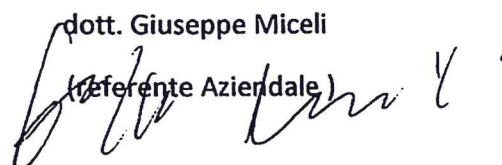 dott. Giuseppe Miceli
(referente Aziendale )